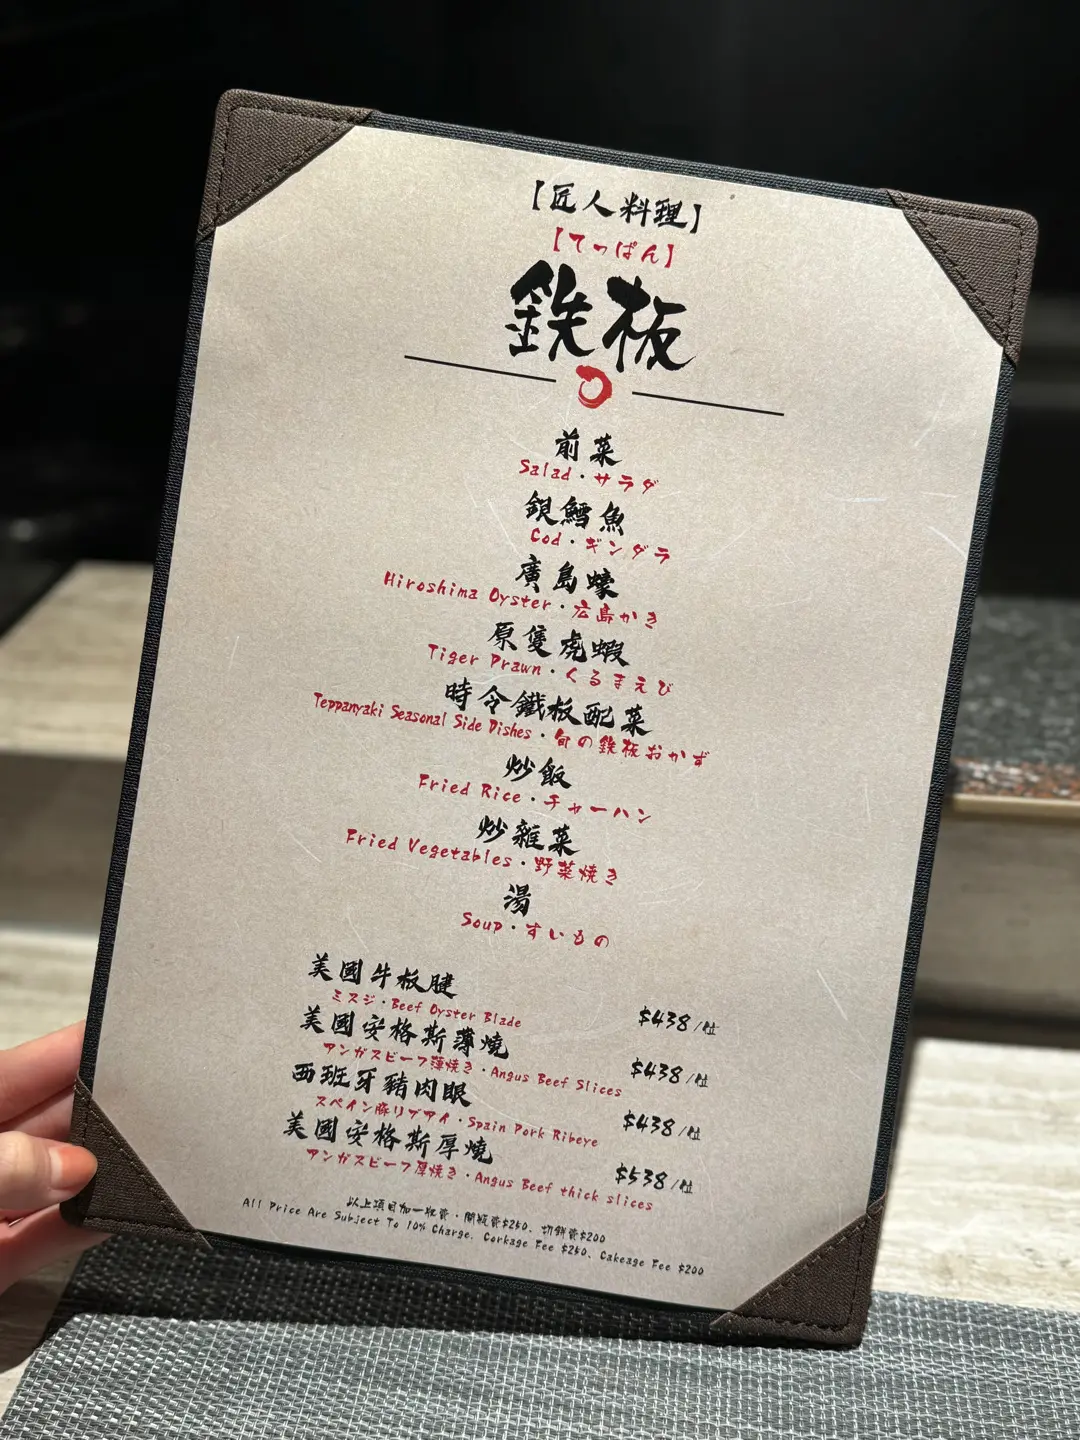 【匠人料理】
【てっぱん】
鉄板
前菜
Salad・サラダ
銀鱈魚
Cod・ギンダラ
廣島蠔
Hiroshima Oyster・広島かき
原隻虎蝦
Tiger Prawn・くるまえび
時令鐵板配菜
Teppanyaki Seasonal Side Dishes・旬の鉄板おかず
炒飯
Fried Rice・チャーハン
炒雜菜
Fried Vegetables・野菜焼き
湯
Soup・すいもの
美國牛板腱
ミスジ・Beef Oyster Blade
$438/位
美國安格斯薄燒
アンガスビーフ薄焼き・Angus Beef Slices
$438/位
西班牙豬肉眼
スペイン豚リブアイ・Spain Pork Ribeye
$438/位
美國安格斯厚燒
アンガスビーフ厚焼き・Angus Beef thick slices
$538/位
以上項目加一收費・開瓶費$250、切餅費$200
All Price Are Subject To 10% Charge. Corkage Fee $250、Cakeage Fee $200